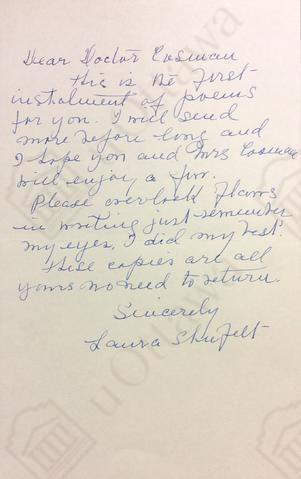 Dear Doctor Cosman
This is the first
instalment of poems
for you. I will send
more before long and
I hope you and Mrs Cosman
will enjoy a few.
Please overlook flaws
in writing just remember
my eyes, I did my best.
These copies are all
yours no need to return.
Sincerely
Laura Shufelt
uOttawa